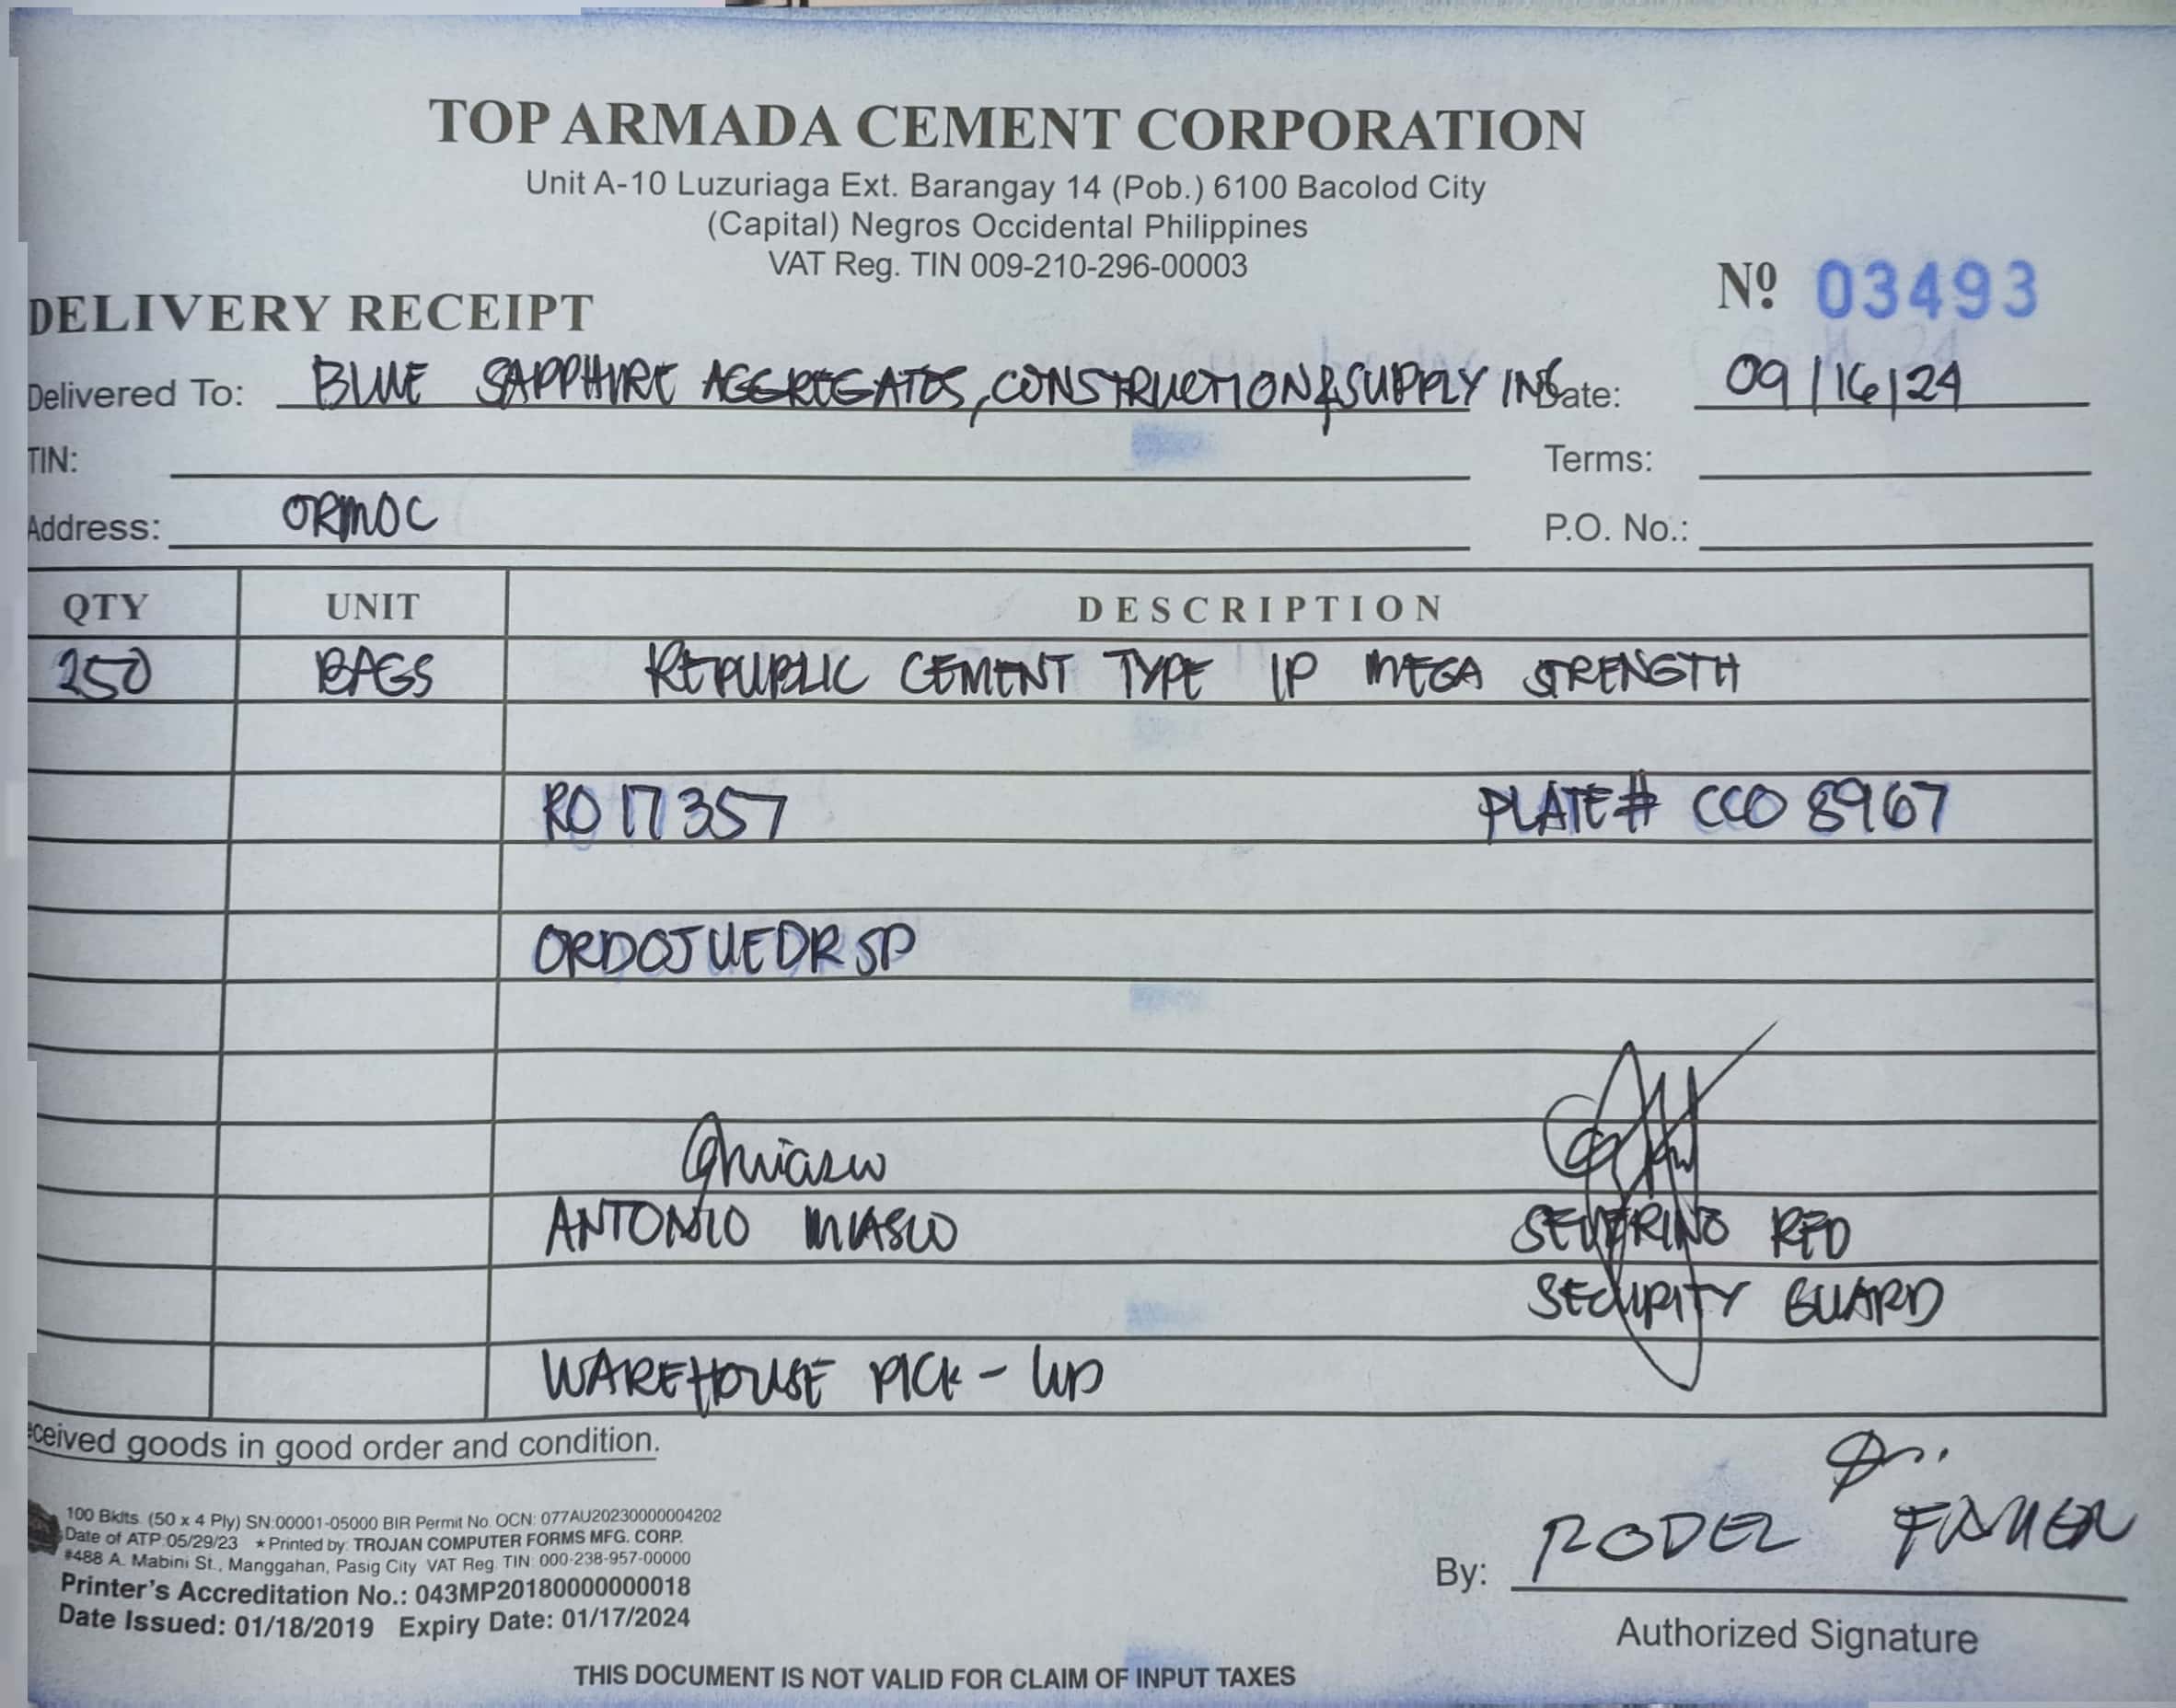 TOP ARMADA CEMENT CORPORATION
Unit A-10 Luzuriaga Ext. Barangay 14 (Pob.) 6100 Bacolod City
(Capital) Negros Occidental Philippines
VAT Reg. TIN 009-210-296-00003
Nº 03493
DELIVERY RECEIPT
Delivered To: BLUE SAPPHIRE AGGREGATES, CONSTRUCTION & SUPPLY INC Date: 09/16/24
TIN: Terms:
Address: ORMOC P.O. No.:
QTY UNIT DESCRIPTION
250 BAGS REPUBLIC CEMENT TYPE 1P MEGA STRENGTH
RO 17357 PLATE# CCO 8967
ORDOJUEDRSP
ANTONIO MIASCO SEVERINO RED
SECURITY GUARD
WAREHOUSE PICK-UP
eceived goods in good order and condition.
100 Bklts. (50 x 4 Ply) SN:00001-05000 BIR Permit No. OCN: 077AU20230000004202
Date of ATP:05/29/23 ★Printed by: TROJAN COMPUTER FORMS MFG. CORP.
#488 A. Mabini St., Manggahan, Pasig City VAT Reg. TIN: 000-238-957-00000
Printer's Accreditation No.: 043MP20180000000018
Date Issued: 01/18/2019 Expiry Date: 01/17/2024
By: RODEL
Authorized Signature
THIS DOCUMENT IS NOT VALID FOR CLAIM OF INPUT TAXES